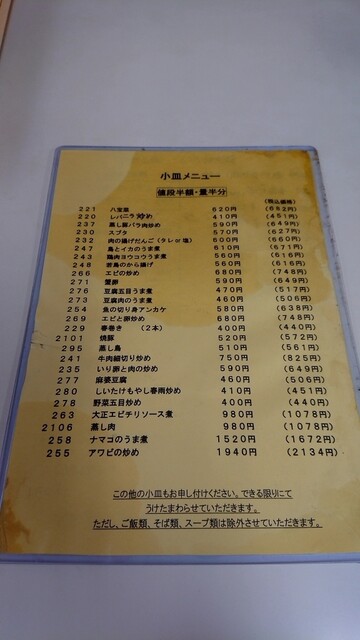 小皿メニュー
値段半額・量半分
(税込価格)
221 八宝菜 620円 (682円)
220 レバニラ炒め 410円 (451円)
237 蒸し豚バラ肉炒め 590円 (649円)
230 スブタ 570円 (627円)
232 肉の揚げだんご(タレor塩) 600円 (660円)
247 鳥とイカのうま煮 610円 (671円)
243 鶏肉ヨウコウうま煮 560円 (616円)
248 若鳥のから揚げ 560円 (616円)
266 エビの炒め 680円 (748円)
271 蟹卵 590円 (649円)
276 豆腐五目うま煮 470円 (517円)
273 豆腐肉のうま煮 460円 (506円)
254 魚の切り身アンカケ 580円 (638円)
269 エビと卵炒め 680円 (748円)
229 春巻き (2本) 400円 (440円)
2101 焼豚 520円 (572円)
295 蒸し鳥 510円 (561円)
241 牛肉細切り炒め 750円 (825円)
235 いり卵と肉の炒め 590円 (649円)
277 麻婆豆腐 460円 (506円)
280 しいたけもやし春雨炒め 410円 (451円)
278 野菜五目炒め 400円 (440円)
263 大正エビチリソース煮 980円 (1078円)
2106 蒸し肉 980円 (1078円)
258 ナマコのうま煮 1520円 (1672円)
255 アワビの炒め 1940円 (2134円)
この他の小皿もお申し付けください。できる限りにて
うけたまわらせていただきます。
ただし、ご飯類、そば類、スープ類は除外させていただきます。